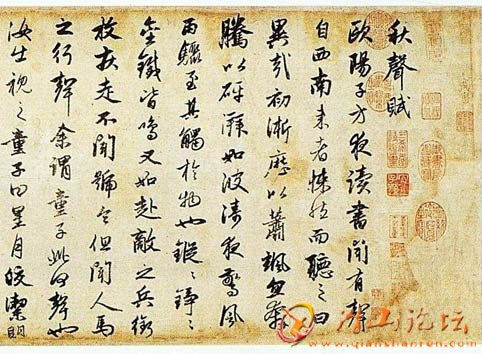 秋聲賦
歐陽子方夜读書聞有聲
自西南来者悚然而聽之曰
異哉初淅瀝以蕭颯忽奔
騰以砰湃如波濤夜驚風
雨驟至其觸於物也鏦〻錚〻
金鐵皆鳴又如赴敵之兵銜
枚疾走不聞號令但聞人馬
之行聲余謂童子此何聲也
汝出視之童子曰星月皎潔明
山论坛
www.qianshanren.com